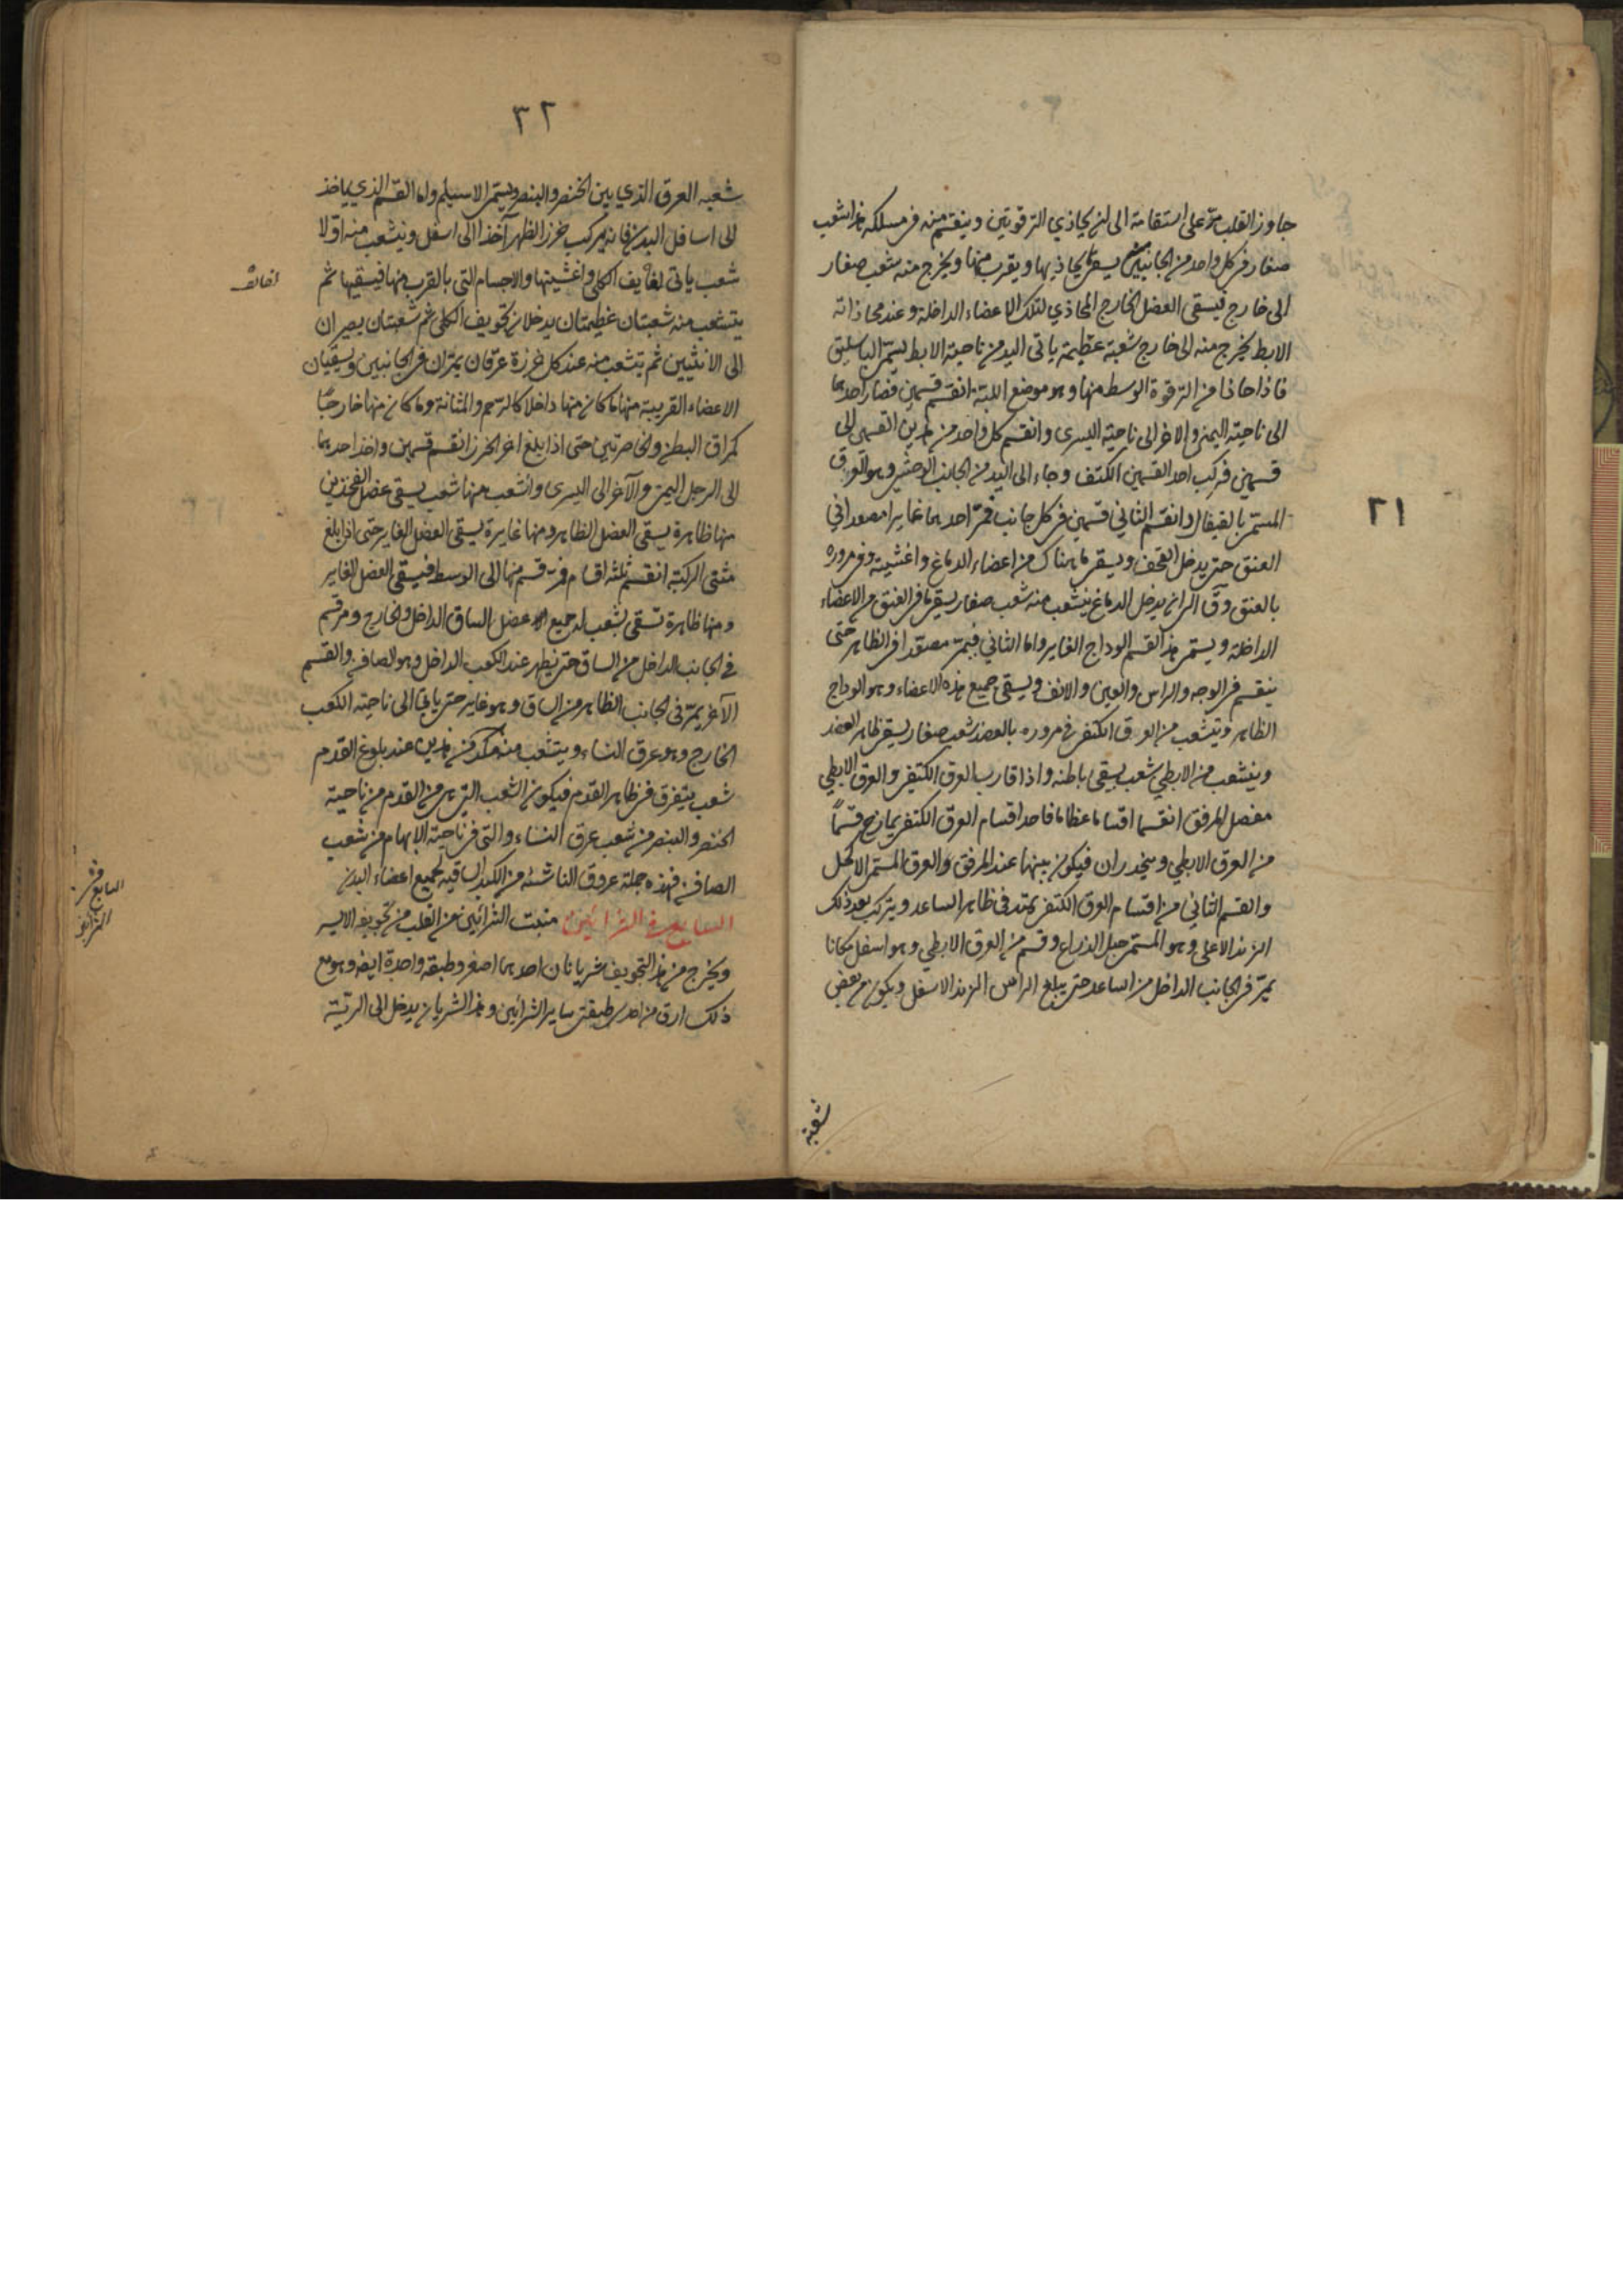 ٢١
جاوز القلب مرّ على استقامة الى ان يحاذي الترقوتين وينقسم منه في مسلكه هذا شعب
صغار في كل واحد من الجانبين يسقي ما يحاذيها ويقرب منها ويخرج منه شعب صغار
الى خارج فيسقى العضل الخارج المحاذي لتلك الاعضاء الداخلة وعند محاذاته
الابط يخرج منه الى خارج شعبة عظيمة ياتى اليد من ناحية الابط يسمّى الباسليق
فاذا حاذا من الترقوة الوسط منها وهو موضع اللبّة انقسم قسمين فصار احدهما
الى ناحية اليمنى والاخر الى ناحية اليسرى وانقسم كل واحد من هذين القسمين الى
قسمين فركب احد القسمين الكتف وجاء الى اليد من الجانب الوحشي وهو العرق
المسمى بالقيفال وانقسم الثاني قسمين في كل جانب فمرّ احدهما غايرا مصعدا في
العنق حتى يدخل القحف ويسقي ما هناك من اعضاء الدماغ واغشيته وفي مروره
بالعنق الى ان يدخل الدماغ ينشعب منه شعب صغار يسقي ما في العنق من الاعضاء
الداخلة ويسمى هذا القسم الوداج الغاير واما الثاني فيمرّ مصعدا في الظاهر حتى
ينقسم في الوجه والراس والعين والانف ويسقى جميع هذه الاعضاء وهو الوداج
الظاهر ويتشعب من العرق الكتفي في مروره بالعضد شعب صغار يسقي ظاهر العضد
وينشعب من الابطي شعب يسقي باطنه واذا قارب العرق الكتفي والعرق الابطي
مفصل المرفق انقسما اقساما عظاما فاحد اقسام العرق الكتفي يمازج قسماً
من العرق الابطي وينحدران فيكون بينهما عند المرفق العرق المسمى الاكحل
والقسم الثاني من اقسام العرق الكتفي يمتد في ظاهر الساعد ويركب بعد ذلك
الزند الاعلى وهو المسمى حبل الذراع وقسم من العرق الابطي وهو اسفل مكانا
يمرّ في الجانب الداخل من الساعد حتى يبلغ الراس الزند الاسفل ويكون من بعض
شعبة
٣٢
شعبه العرق الذي بين الخنصر والبنصر ويسمى الاسيلم واما القسم الذي ياخذ
الى اسافل البدن فانه يركب خرز الظهر آخذا الى اسفل وينشعب منه اوّلا
شعب ياتى لفايف الكلى واغشيتها والاجسام التى بالقرب منها فيسقيها ثم
يتشعب منه شعبتان عظيمتان يدخلان تجويف الكلى ثم شعبتان يصيران
الى الانثيين ثم يتشعب منه عند كل خرزة عرقان يمرّان في الجانبين ويسقيان
الاعضاء القريبة منها ما كان منها داخلا كالرحم والمثانة وما كان منها خارجًا
كمراق البطن والخاصرتين حتى اذا بلغ اخر الخرز انقسم قسمين واخذ احدهما
الى الرجل اليمنى والآخر الى اليسرى وانشعب منها شعب يسقي عضل الفخذين
منها ظاهرة يسقى العضل الظاهر ومنها غايرة يسقى العضل الغاير حتى اذا بلغ
مثنى الركبة انقسم ثلثة اقسام فمرّ قسم منها الى الوسط فيسقى العضل الغاير
ومنها ظاهرة تسقى بشعب له جميع عضل الساق الداخل والخارج ومر قسم
في الجانب الداخل من الساق حتى يظهر عند الكعب الداخل وهو الصافن والقسم
الآخر يمرّ في الجانب الظاهر من الساق وهو غاير حتى ياتى الى ناحية الكعب
الخارج وهو عرق النساء ويتشعب من كل هذين عند بلوغ القدم
شعب يتفرق في ظاهر القدم فيكون الشعب التي هي من القدم من ناحية
الخنصر والبنصر من شعب عرق النساء والتى في ناحية الابهام من شعب
الصافن فهذه جملة عروق الناشئة من الكبد الساقية لجميع اعضاء البدن
السابع في الشرائين منبت الشرائين من القلب من تجويفه الايسر
ويخرج من هذا التجويف شريانان احدهما اصغر وطبقته واحدة ايضا وهو مع
ذلك ارق من احدى طبقتي ساير الشرائين وهذا الشريان يدخل الى الرئة
لفائف
السابع في
الشرائين